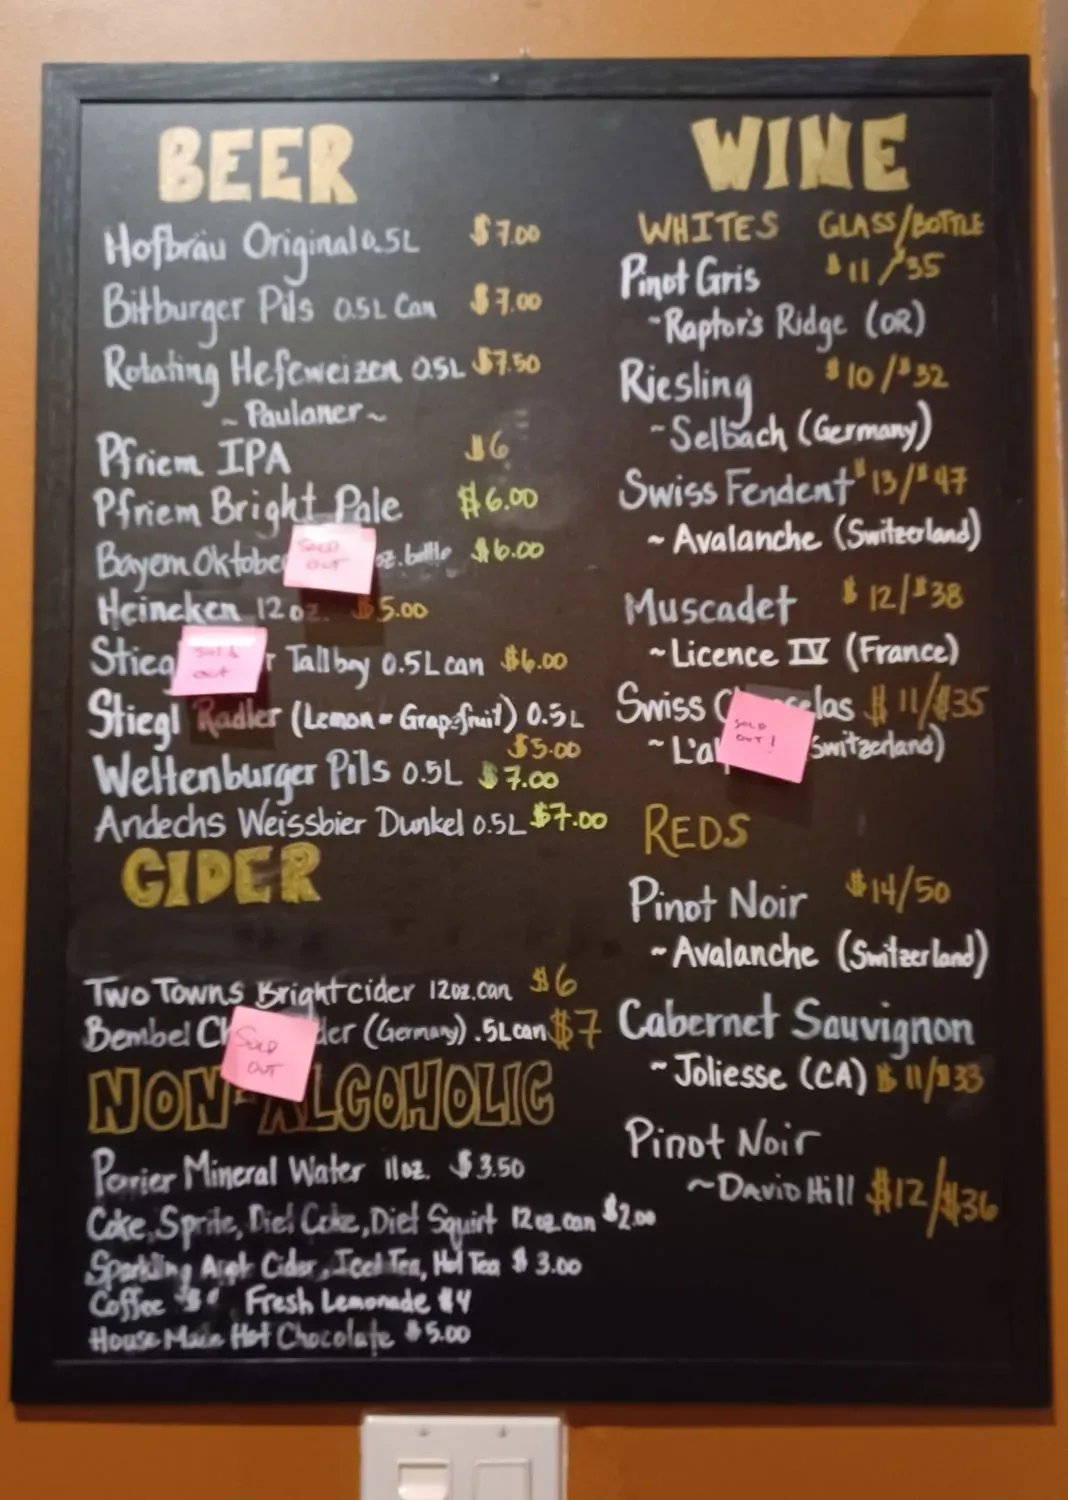 BEER
Hofbräu Original 0.5L $7.00
Bitburger Pils 0.5L Can $7.00
Rotating Hefeweizen 0.5L $7.50
~ Paulaner ~
Pfriem IPA $6
Pfriem Bright Pale $6.00
Bayern Oktobe SOLD OUT oz. bottle $6.00
Heineken 12oz. $5.00
Stieg SOLD OUT r Tallboy 0.5L can $6.00
Stiegl Radler (Lemon or Grapefruit) 0.5L
$5.00
Weltenburger Pils 0.5L $7.00
Andechs Weissbier Dunkel 0.5L $7.00
CIDER
Two Towns Bright cider 12oz. can $6
Bembel SOLD OUT der (Germany) .5L can $7
NON-ALCOHOLIC
Perrier Mineral Water 11oz. $3.50
Coke, Sprite, Diet Coke, Diet Squirt 12oz can $2.00
Sparkling Cider, Iced Tea, Hot Tea $3.00
Coffee Fresh Lemonade $4
House Made Hot Chocolate $5.00
WINE
WHITES GLASS/BOTTLE
Pinot Gris $11/$35
~Raptor's Ridge (OR)
Riesling $10/$32
~Selbach (Germany)
Swiss Fendent $13/$47
~ Avalanche (Switzerland)
Muscadet $12/$38
~Licence IV (France)
Swiss C SOLD OUT! selas $11/$35
~ L'a Switzerland)
REDS
Pinot Noir $14/50
~Avalanche (Switzerland)
Cabernet Sauvignon
~Joliesse (CA) $11/$33
Pinot Noir
~David Hill $12/$36